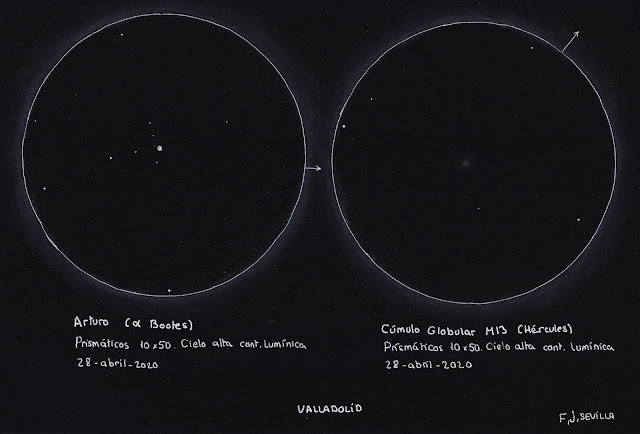 Arturo (α Bootes)
Prismáticos 10x50. Cielo alta cont. Lumínica
28-abril-2020
Cúmulo Globular M13 (Hércules)
Prismáticos 10x50. Cielo alta cont. Lumínica
28-abril-2020
VALLADOLID
F,J,SEVILLA